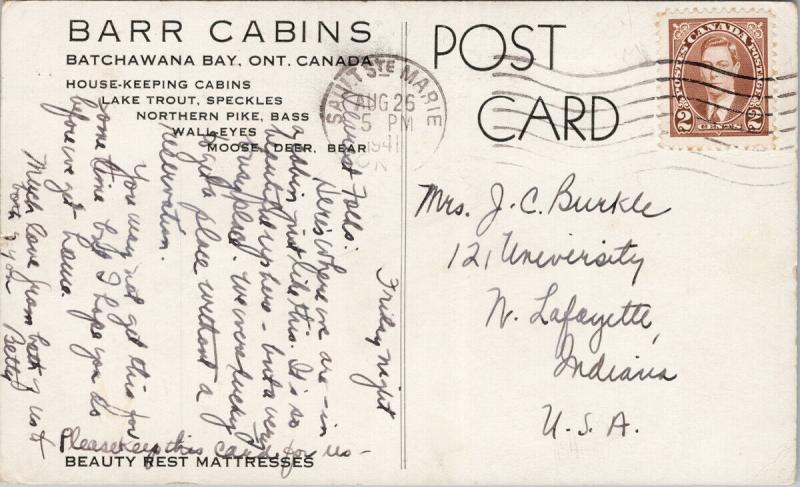 BARR CABINS
BATCHAWANA BAY, ONT. CANADA
HOUSE-KEEPING CABINS
LAKE TROUT, SPECKLES
NORTHERN PIKE, BASS
WALL-EYES
MOOSE, DEER, BEAR
Friday night
Dearest Folks:
Here's where we are - in
a cabin just like this. It is so
beautiful up here - but a very
busy place. We were lucky
to get a place without a
reservation.
You may not get this for
some time but I hope you do
before we get home.
Much love from both of us to
both of you
Betty
Please keep this card for us -
BEAUTY REST MATTRESSES
POST
CARD
SAULT STE MARIE
AUG 26
5 PM
1941
ON
POSTES CANADA POSTAGE
2 CENTS 2
Mrs. J. C. Burkle
121 University
W. Lafayette,
Indiana
U.S.A.